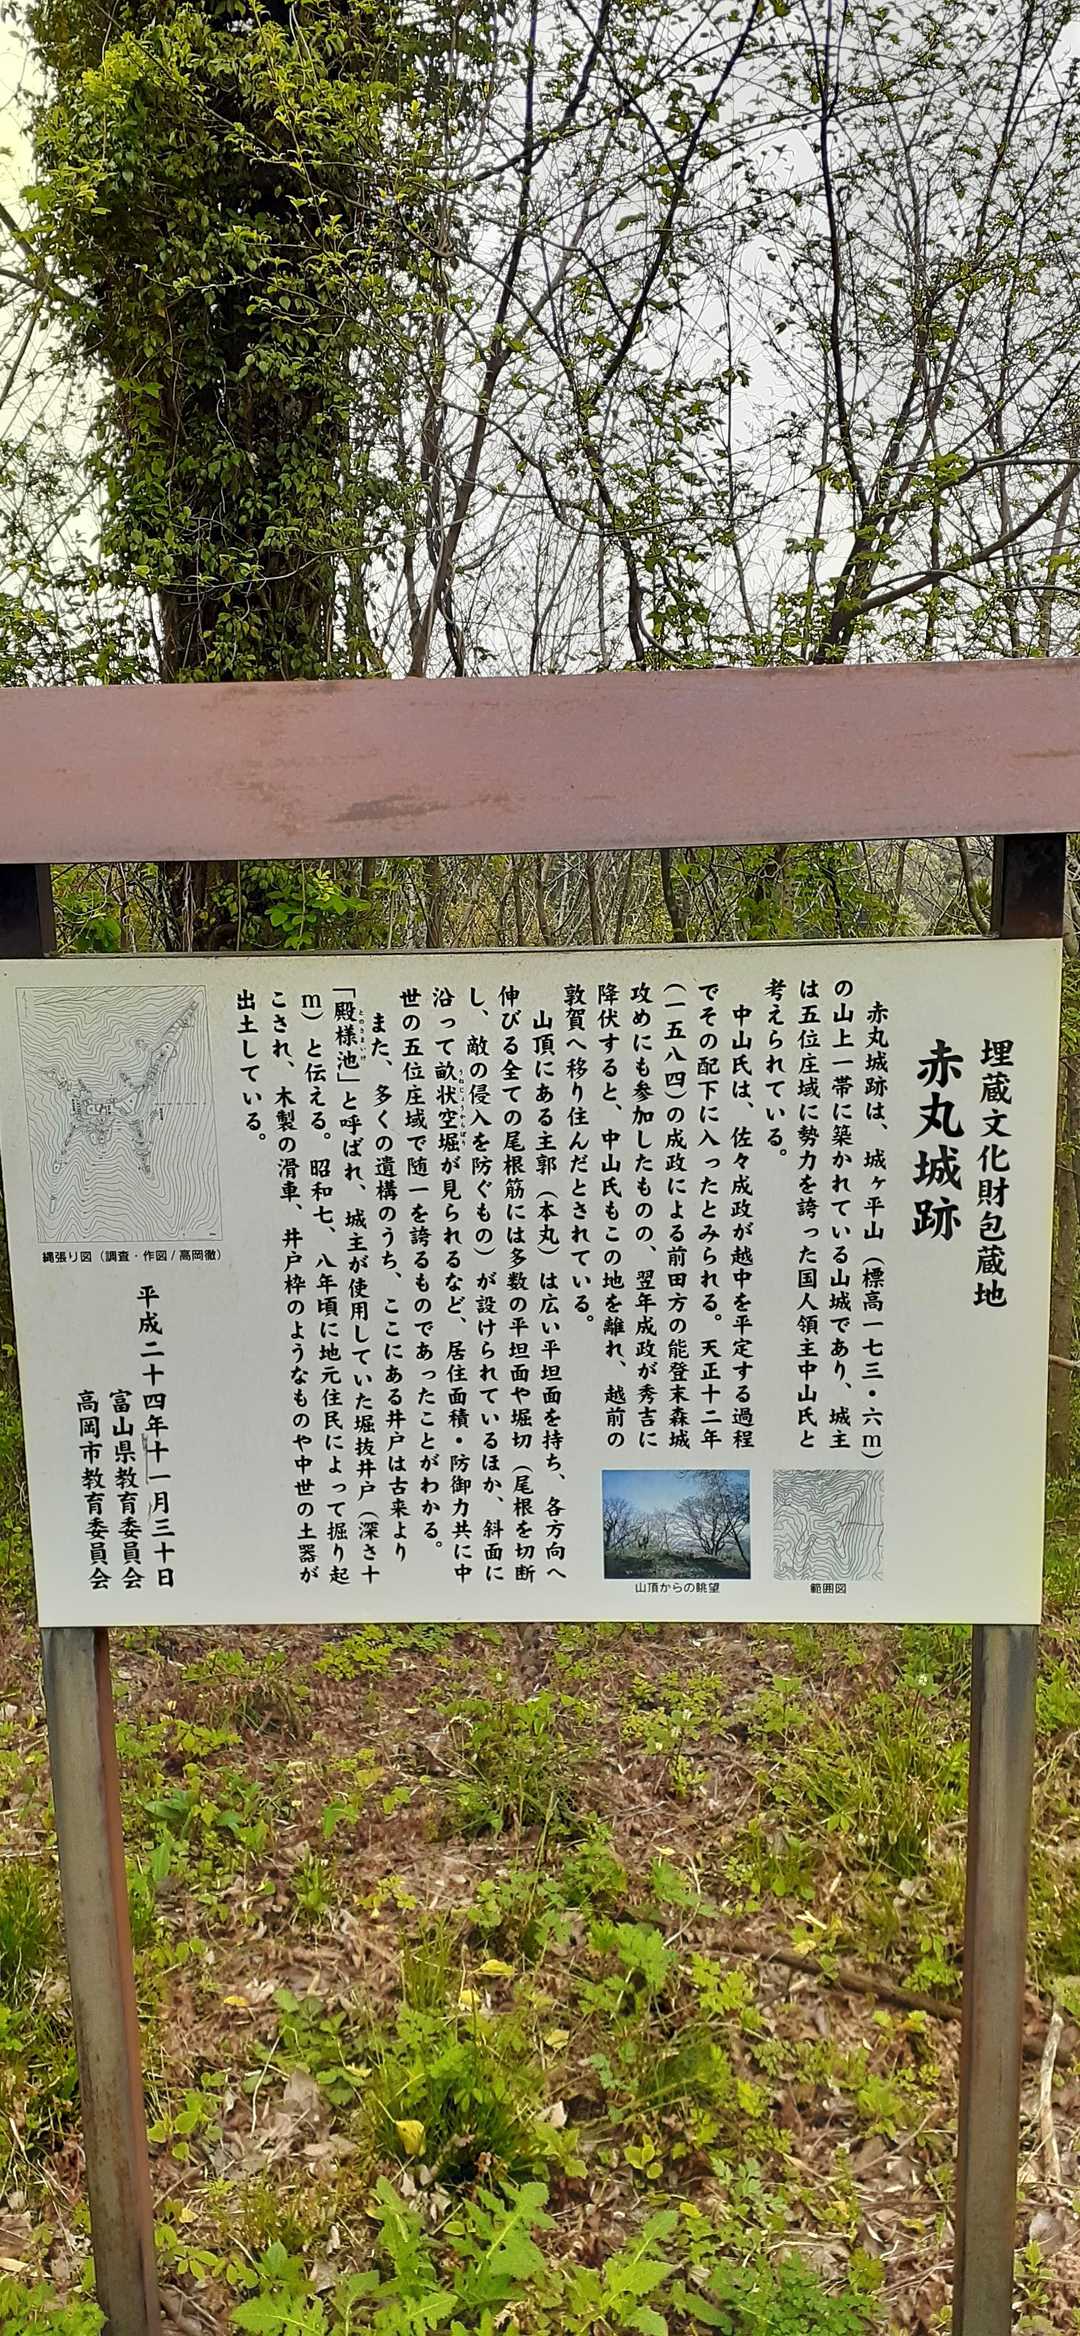 埋蔵文化財包蔵地
赤丸城跡
赤丸城跡は、城ヶ平山（標高一七三・六m）
の山上一帯に築かれている山城であり、城主
は五位庄域に勢力を誇った国人領主中山氏と
考えられている。
中山氏は、佐々成政が越中を平定する過程
でその配下に入ったとみられる。天正十二年
（一五八四）の成政による前田方の能登末森城
攻めにも参加したものの、翌年成政が秀吉に
降伏すると、中山氏もこの地を離れ、越前の
敦賀へ移り住んだとされている。
山頂にある主郭（本丸）は広い平坦面を持ち、各方向へ
伸びる全ての尾根筋には多数の平坦面や堀切（尾根を切断
し、敵の侵入を防ぐもの）が設けられているほか、斜面に
沿って畝状空堀が見られるなど、居住面積・防御力共に中
うねじょうからぼり
世の五位庄域で随一を誇るものであったことがわかる。
また、多くの遺構のうち、ここにある井戸は古来より
「殿様池」と呼ばれ、城主が使用していた堀抜井戸（深さ十
とのさまいけ
m）と伝える。昭和七、八年頃に地元住民によって掘り起
こされ、木製の滑車、井戸枠のようなものや中世の土器が
出土している。
範囲図
山頂からの眺望
縄張り図（調査・作図/高岡徹）
平成二十四年十一月三十日
富山県教育委員会
高岡市教育委員会